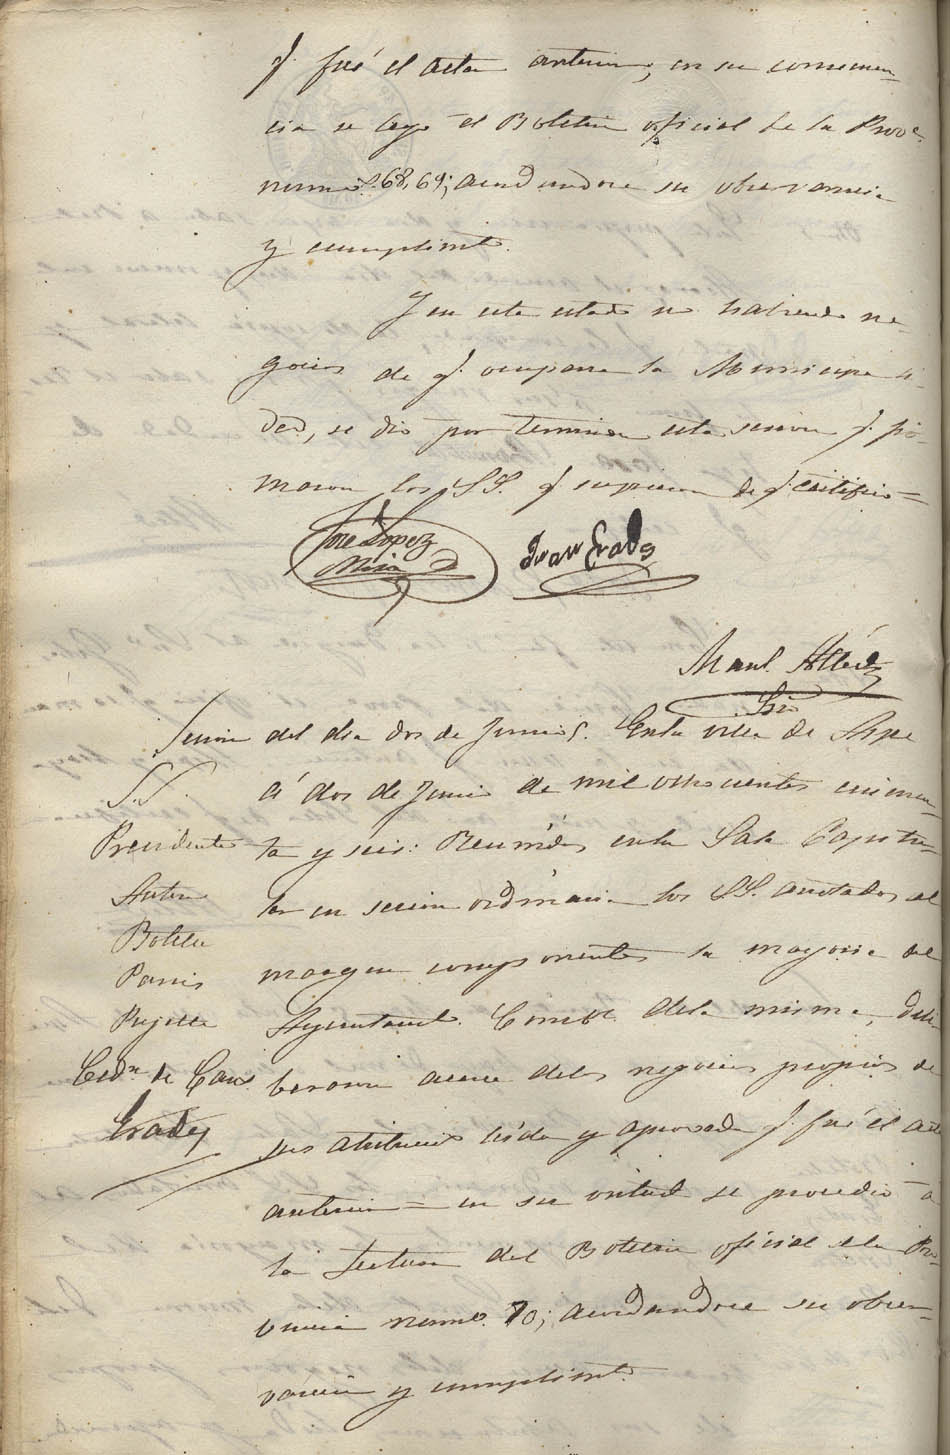 q.e fué el acta anterior, en su consecuen-
cia se leyo el Boletin oficial de la Prov.a
num.s 68, 69; acordandose su observancia
y cumplimto.
Y en este estado no habiendo ne-
gocios de q.e ocuparse la Municipali-
dad, se dio por terminada esta sesion q.e fir-
maron los SS. q.e supieron de q.e certifico=
José Lopez
Juan Erades
Manl.
Srio
Sesion del dia dos de Junio. En la villa de Aspe
á dos de Junio de mil ochocientos cincuen-
ta y seis: Reunidos en la Sala Capitu-
lar en sesion ordinaria los SS. anotados al
margen componentes la mayoria del
Ayuntamto. Constl. dela misma, deli-
beraron acerca delos negocios propios de
sus atribucions leida y aprovada q.e fué el acta
anterior = en su virtud se procedió á
la lectura del Boletin oficial dela Pro-
vincia num.o 70; acordandose su obser-
vancia y cumplimto.
SS.
Presidente
Botella
Pujalte
Erades